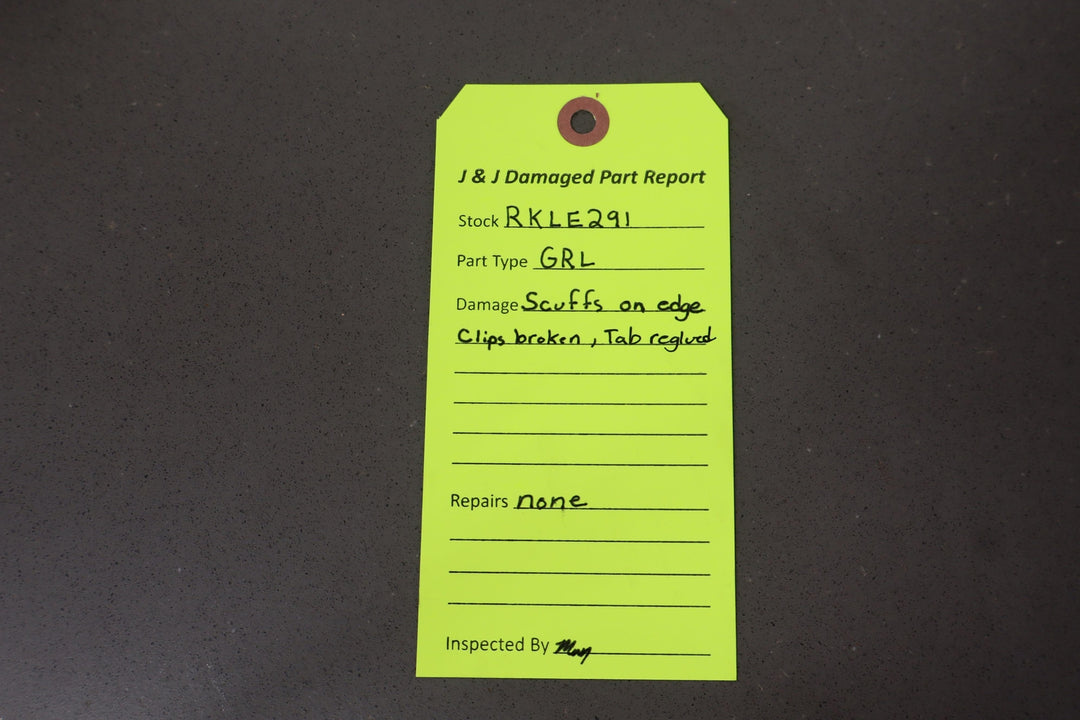 J & J Damaged Part Report
Stock RKLE291
Part Type GRL
Damage Scuffs on edge
Clips broken, Tab reglued
Repairs none
Inspected By